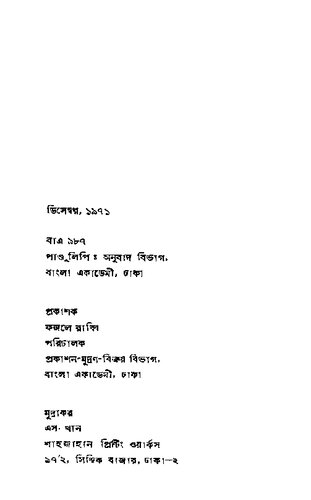 ডিসেম্বর, ১৯৭১
বাএ ৯৮৭
পাণ্ডুলিপি : অনুবাদ বিভাগ,
বাংলা একাডেমী, ঢাকা
প্রকাশক
ফজলে রাব্বি
পরিচালক
প্রকাশন-মুদ্রণ-বিক্রয় বিভাগ,
বাংলা একাডেমী, ঢাকা
মুদ্রাকর
এস. খান
শাহজাহান প্রিন্টিং ওয়ার্কস
১৭/২, সিদ্দিক বাজার, ঢাকা—২